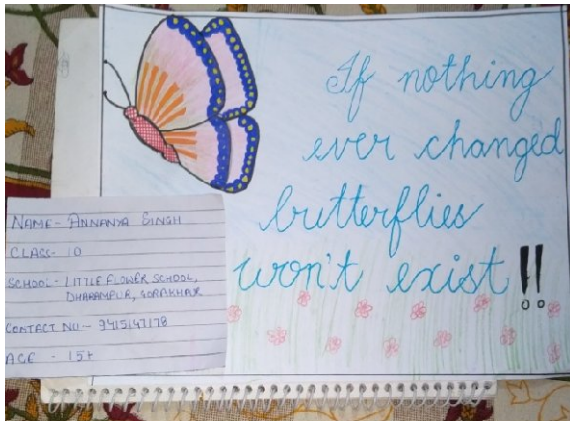 If nothing
ever changed
butterflies
won't exist!!
NAME- ANNANYA SINGH
CLASS- 10
SCHOOL- LITTLE FLOWER SCHOOL,
DHARAMPUR, GORAKHPUR
CONTACT NU- 9415147178
AGE - 15+